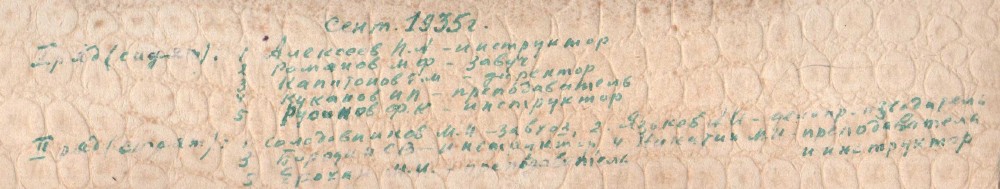 Сент. 1935г.
I ряд (сидят). 1 Алексеев П.А - инструктор
2 Романов М.Ф - завуч
3 Капитонов Г.М - директор
4 Куканов И.П - преподаватель
5 Русинов Ф.К - инструктор
II ряд (стоят): 1 Солодовников М.И - завхоз, 2. Языков
3 С.В - инструктор 4 Никитин М.И преподаватель
5 Ерохин и инструктор